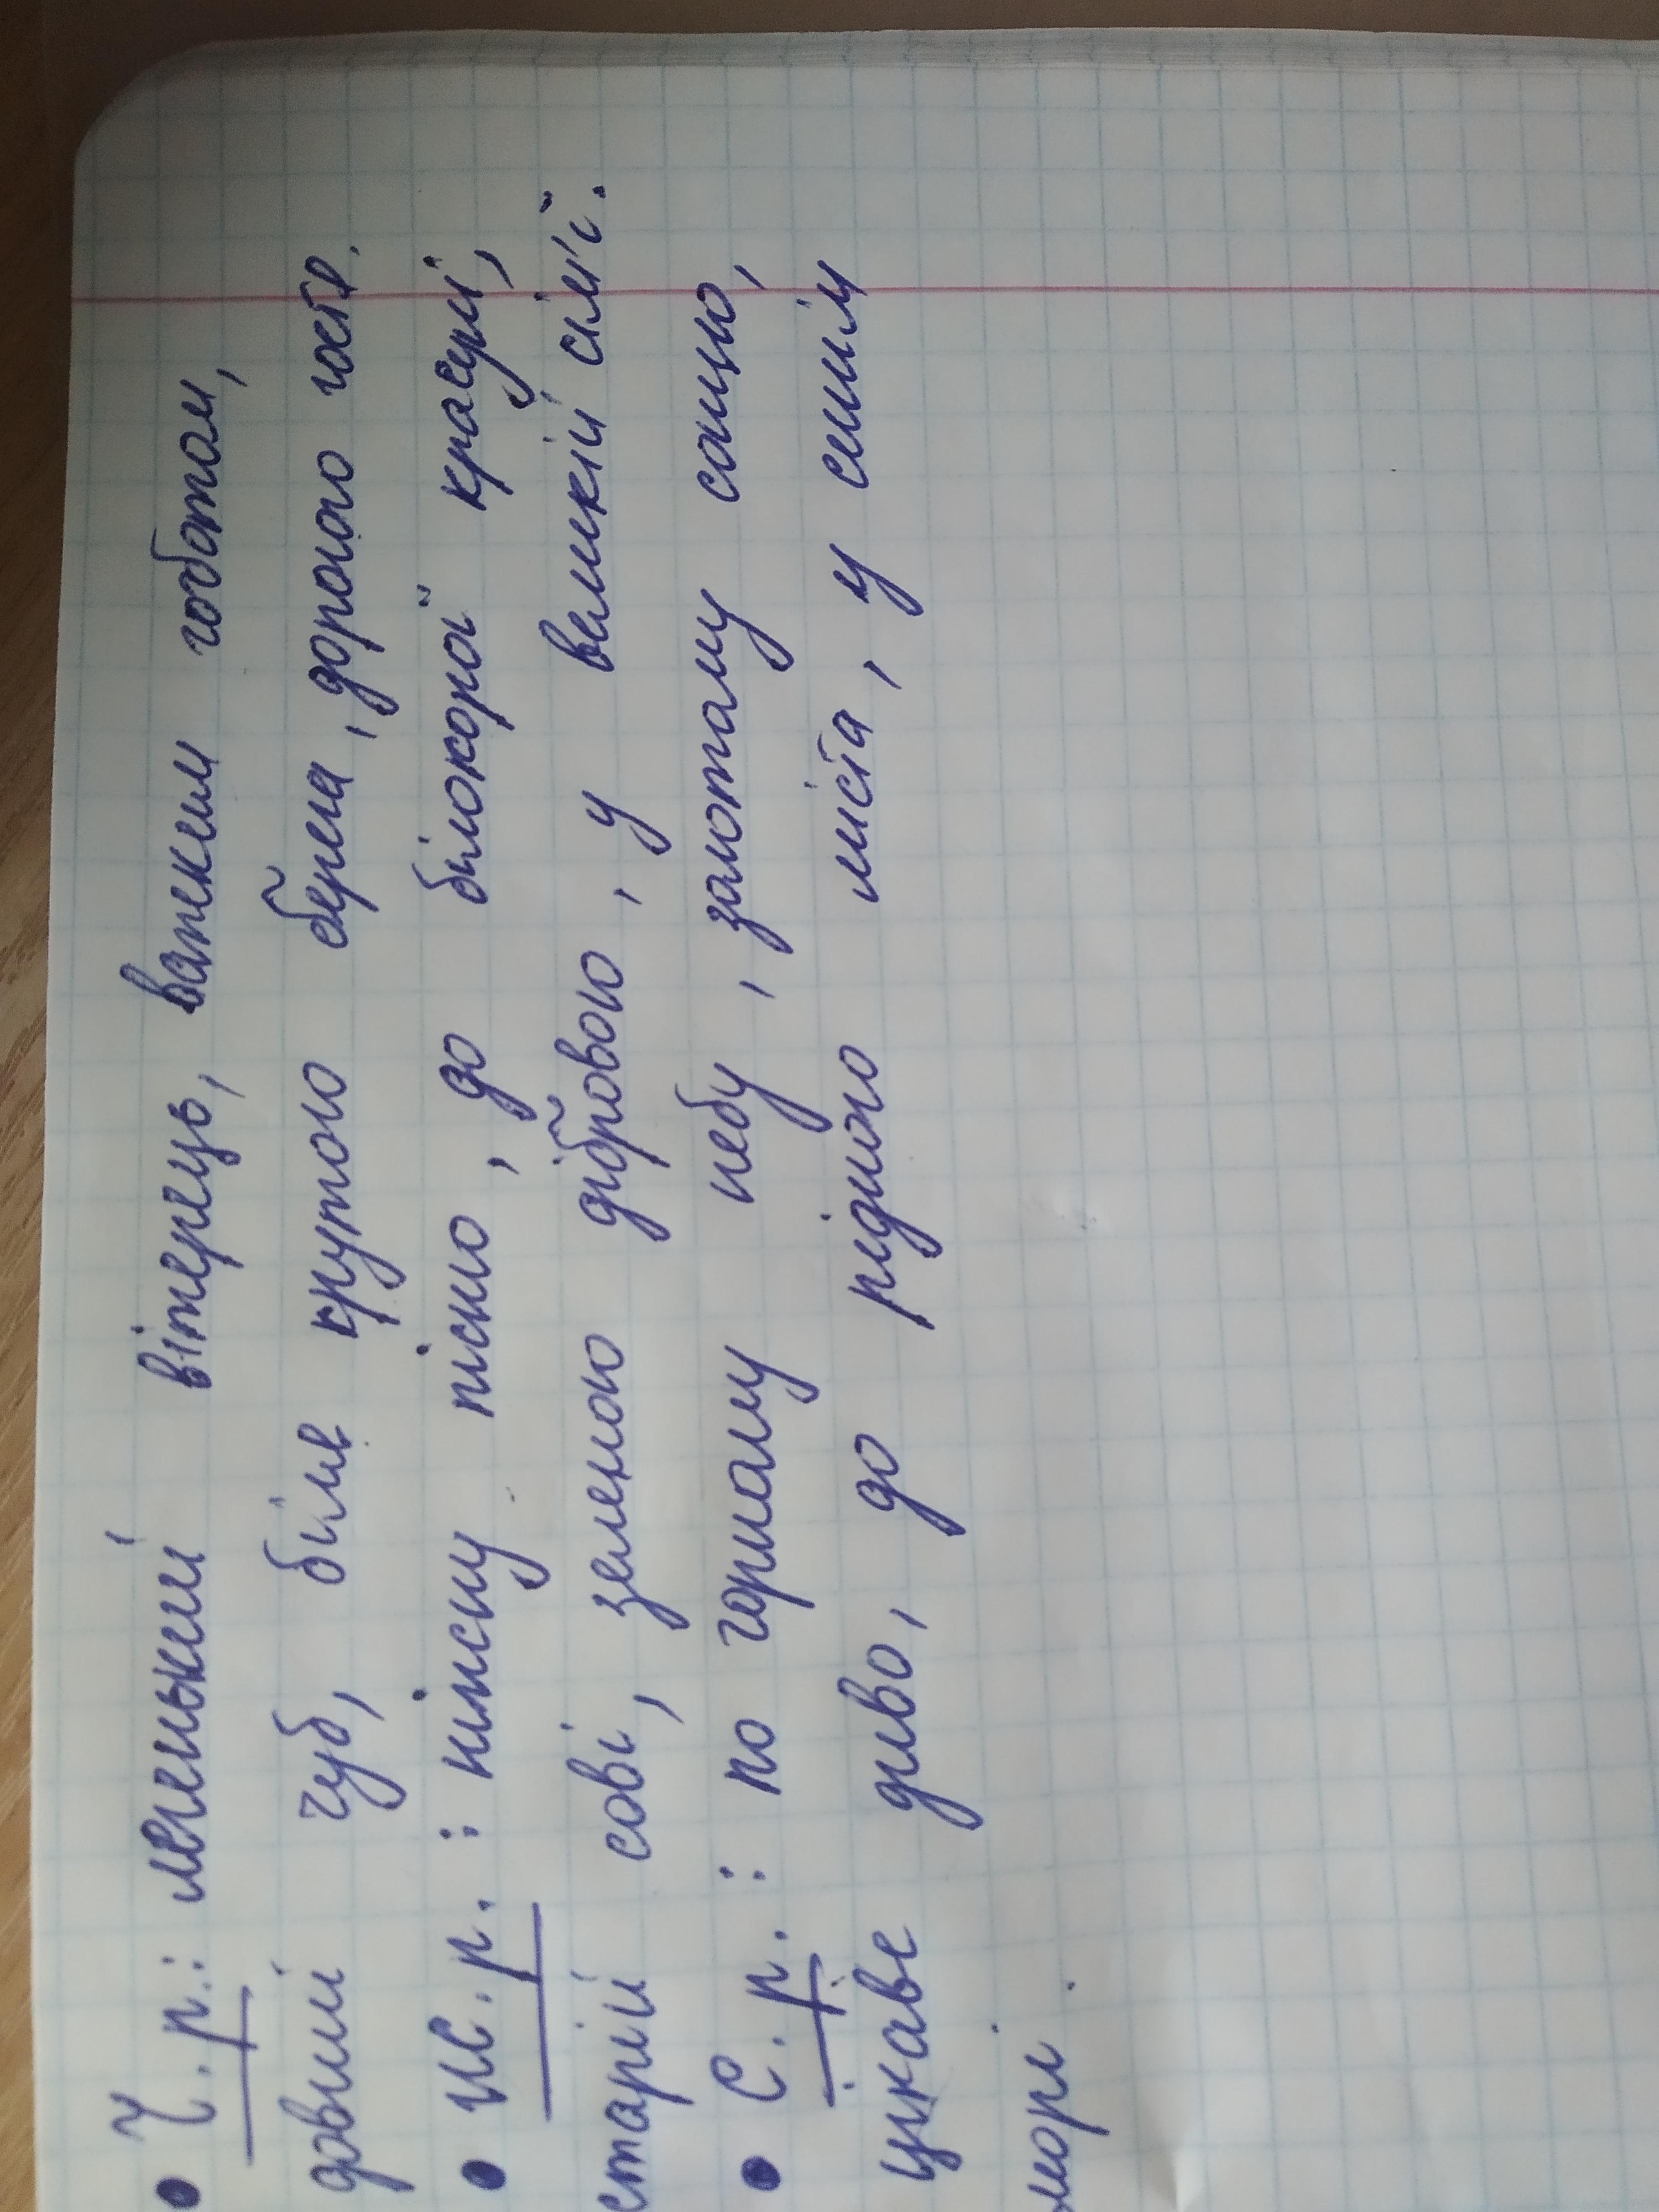 • Ч.р.: легенький вітерець, важким чоботом,
довгий чуб, біля крутого берега, дорогого гостя.
• Ж.р.: ніжну пісню, до білокорої красуні,
старій сові, зеленою дібровою, у великій сім'ї.
• С.р.: по горному небу, золотому сонцю,
цікаве диво, до рідного міста, у синім
морі.